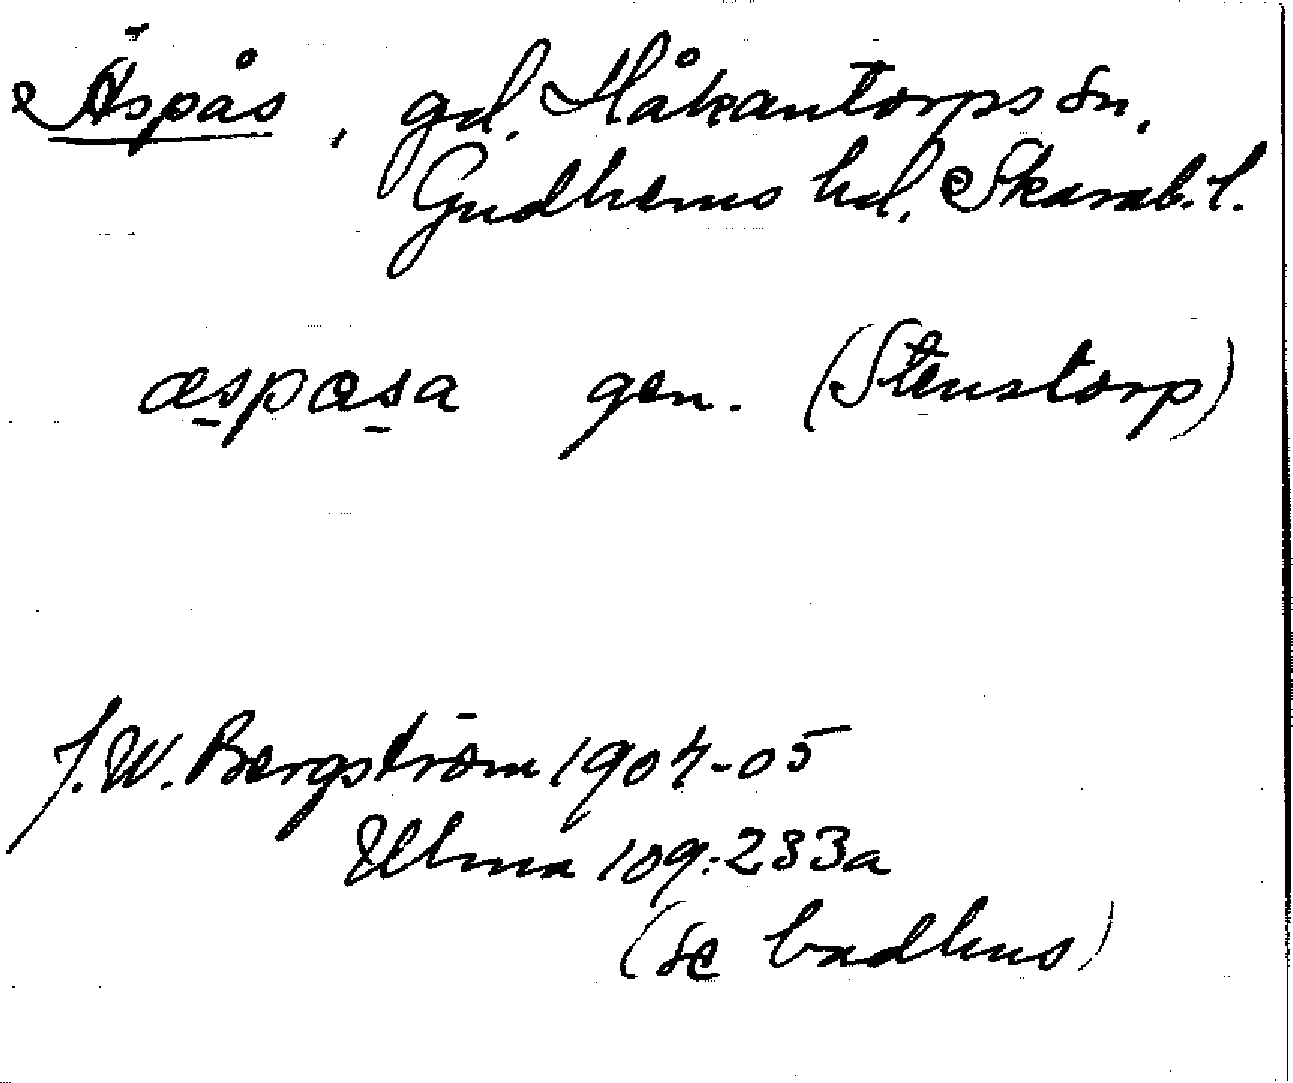 Äspås, gd. Håkantorps sn,
Gudhems hd. Skarab. l.
æspœsa gen. (Stenstorp)
J. W. Bergström 1904-05
Ulma 109:233a
(se badhus)